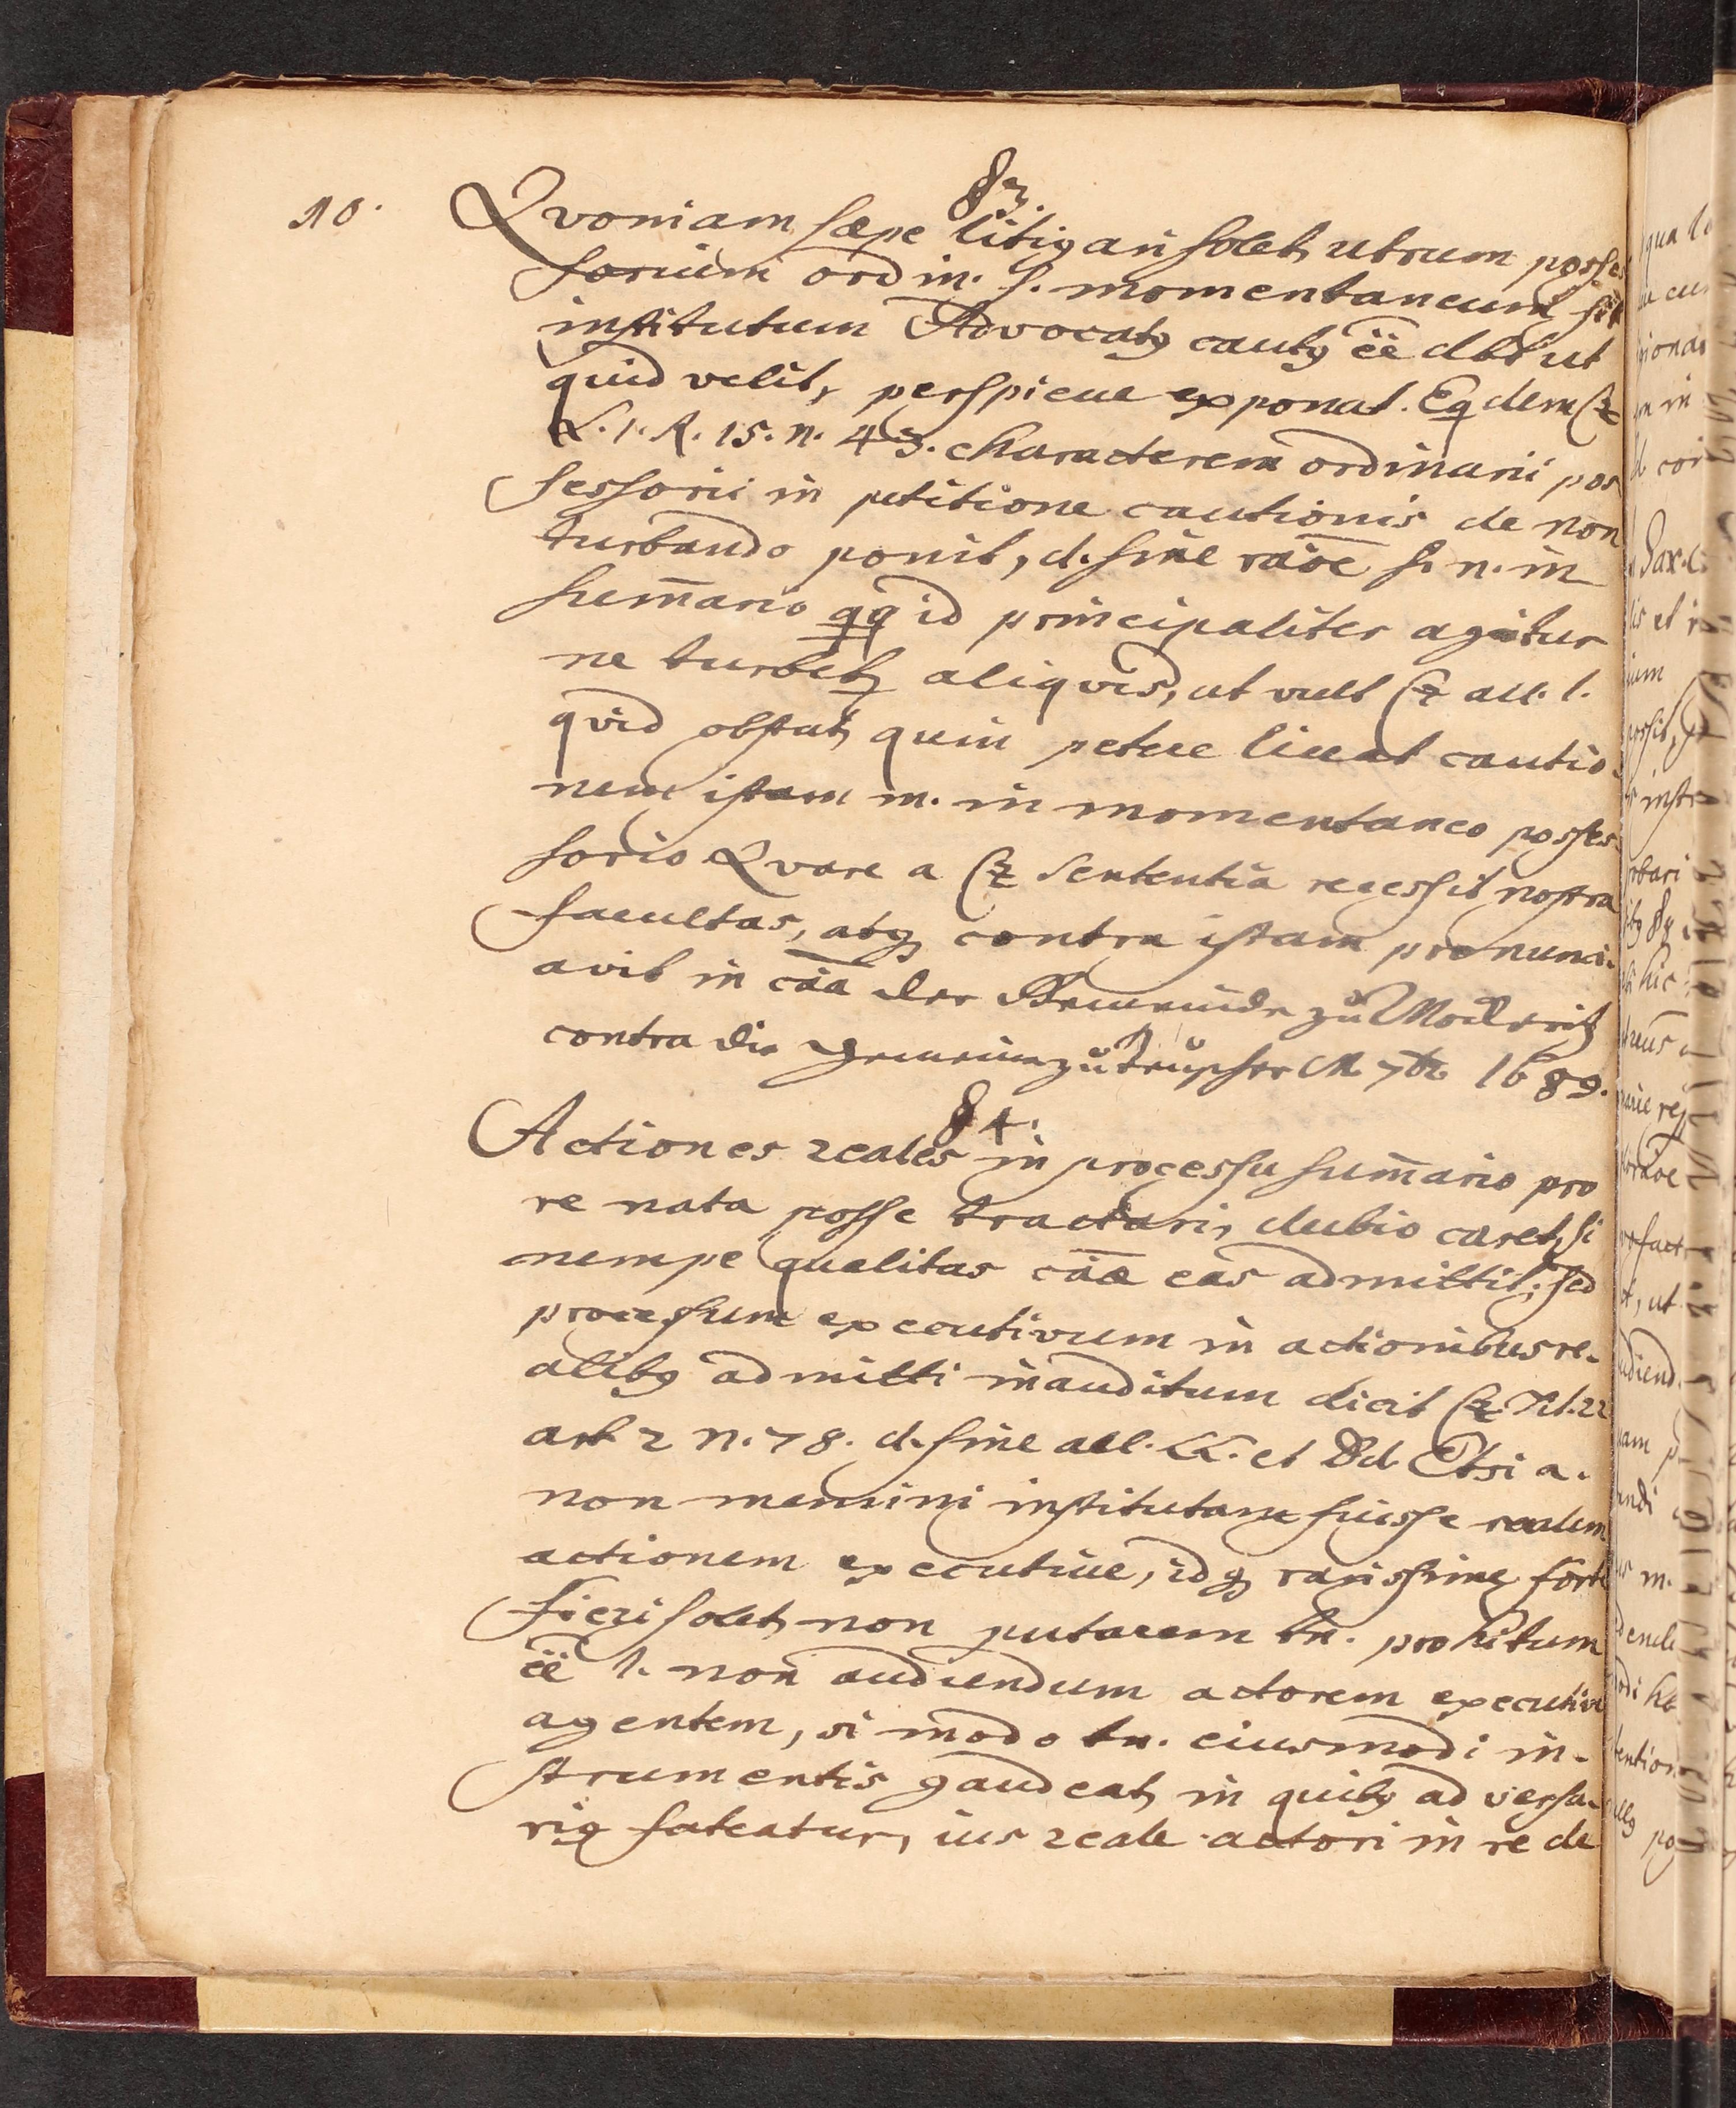 83.
10. Qvoniam sæpe litigari solet, utrum posses
sorium ordin. s. momentaneum sit
institutum Advocatg cautg ēē debet ut
quid velit, perspicue exponat. Eqdem Cz
L. 1. R. 15. n. 43. characterem ordinarii pos
sessorii in petitione cautionis de non
turbando ponit, d. sine raōe s. n. in
sum̄ario qq id principaliter agitur
ne turbetʒ aliqvis, ut vult Cz all. l.
qvid obstat, quin petere liceat cautio
nem istam m. in momentaneo posses
sorio Qvare a Cz sententia recessit nostra
facultas, atq contra istam pronunci-
avit in cāa der Gemeinde zu Mockritz
contra die Gemeine zu M. 7br. 1689.
84.
Actiones reales in processu sum̄ario pro
re nata posse tractari, dubio caret, si
nempe qualitas cāæ eas admittit; sed
processum executivum in actionibus re-
alibg admitti inauditum dicit Cz. Tit. 22
art 2 n. 78. d. sine all. LL. et Dd. Etsi a.
non memini institutam fuisse realem
actionem executive, idq rarissime forte
fieri solet, non putarem tn. prohitum
ēē l. non audiendum actorem executive
agentem, si modo tn. eiusmodi in-
strumentis gaudeat, in quibg adversa-
rig fateatur, ius reale actori in re de